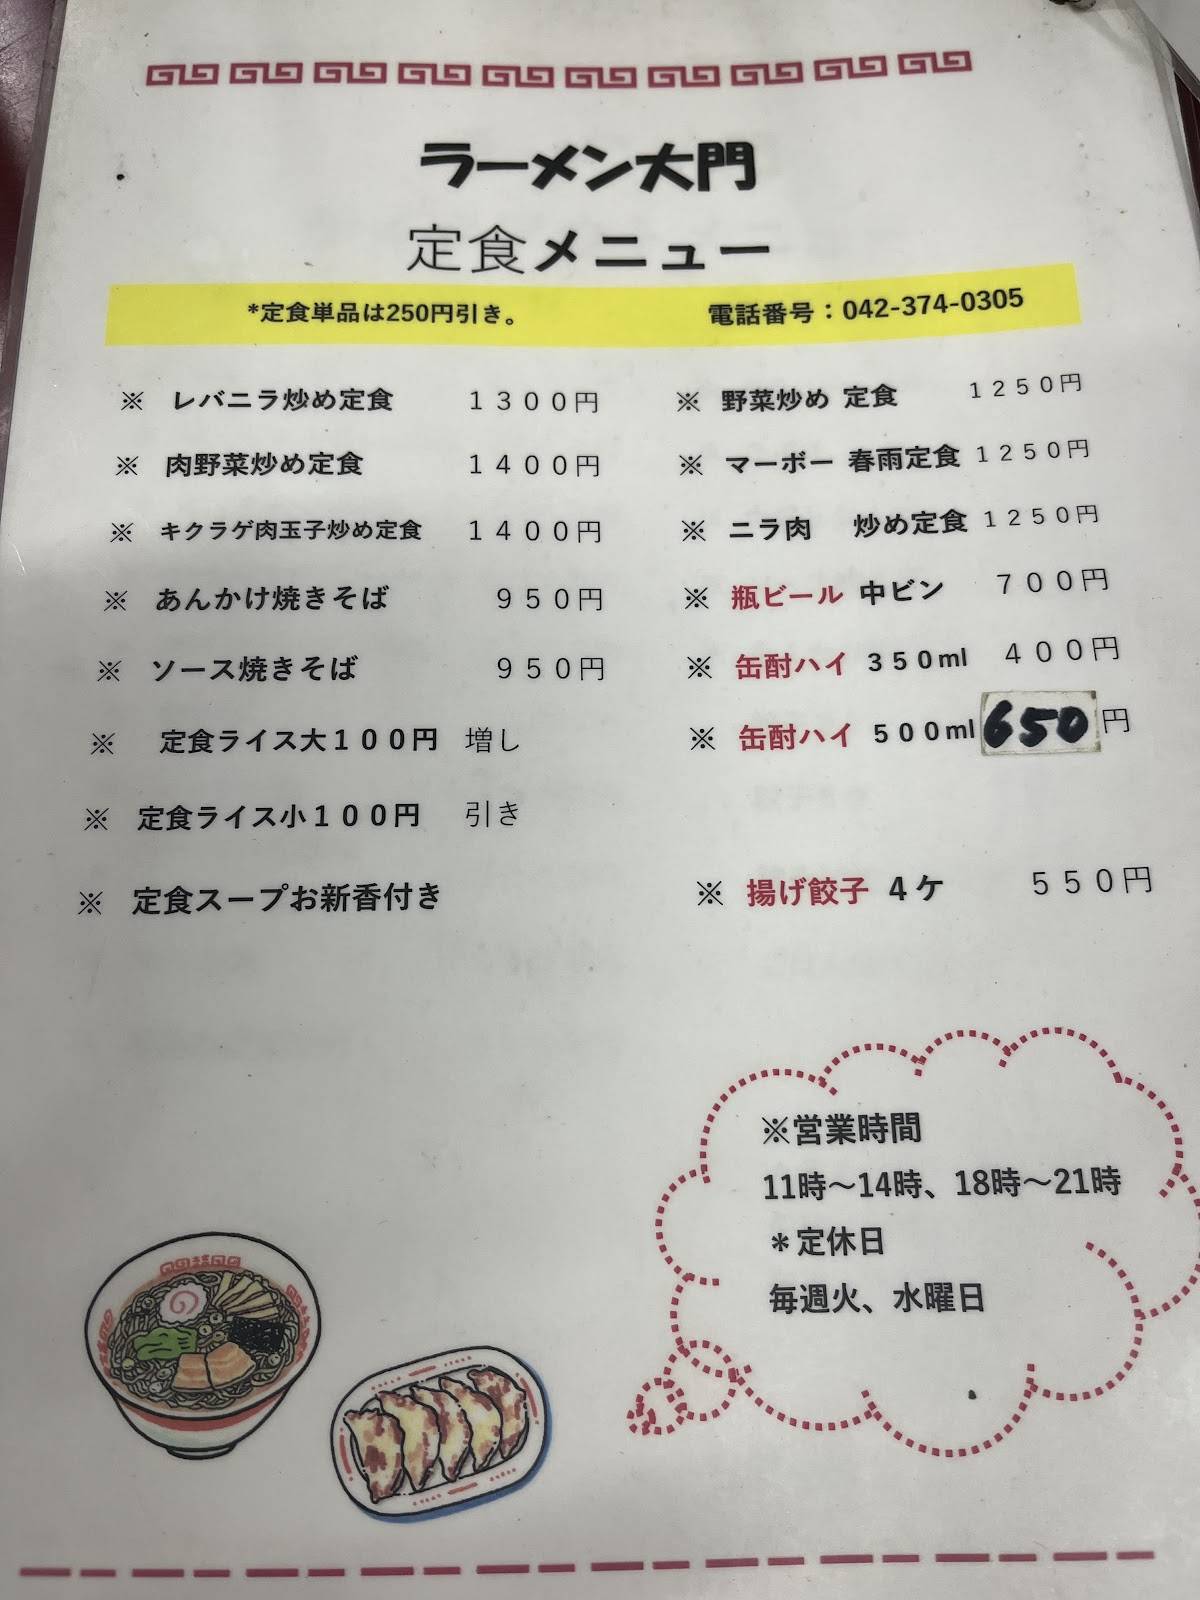 ラーメン大門
定食メニュー
*定食単品は250円引き。 電話番号：042-374-0305
※ レバニラ炒め定食 １３００円
※ 肉野菜炒め定食 １４００円
※ キクラゲ肉玉子炒め定食 １４００円
※ あんかけ焼きそば ９５０円
※ ソース焼きそば ９５０円
※ 定食ライス大１００円 増し
※ 定食ライス小１００円 引き
※ 定食スープお新香付き
※ 野菜炒め 定食 １２５０円
※ マーボー 春雨定食 １２５０円
※ ニラ肉 炒め定食 １２５０円
※ 瓶ビール 中ビン ７００円
※ 缶酎ハイ ３５０ml ４００円
※ 缶酎ハイ ５００ml 650円
※ 揚げ餃子 ４ケ ５５０円
※営業時間
11時～14時、18時～21時
＊定休日
毎週火、水曜日